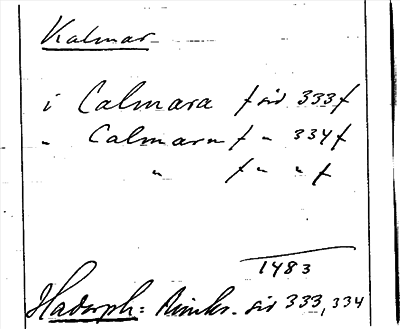 Kalmar
i Calmara f sid 333 f
„ Calmarn f „ 334 f
„ f „ „ f
1483
Hadorph: Rimkr. sid 333, 334